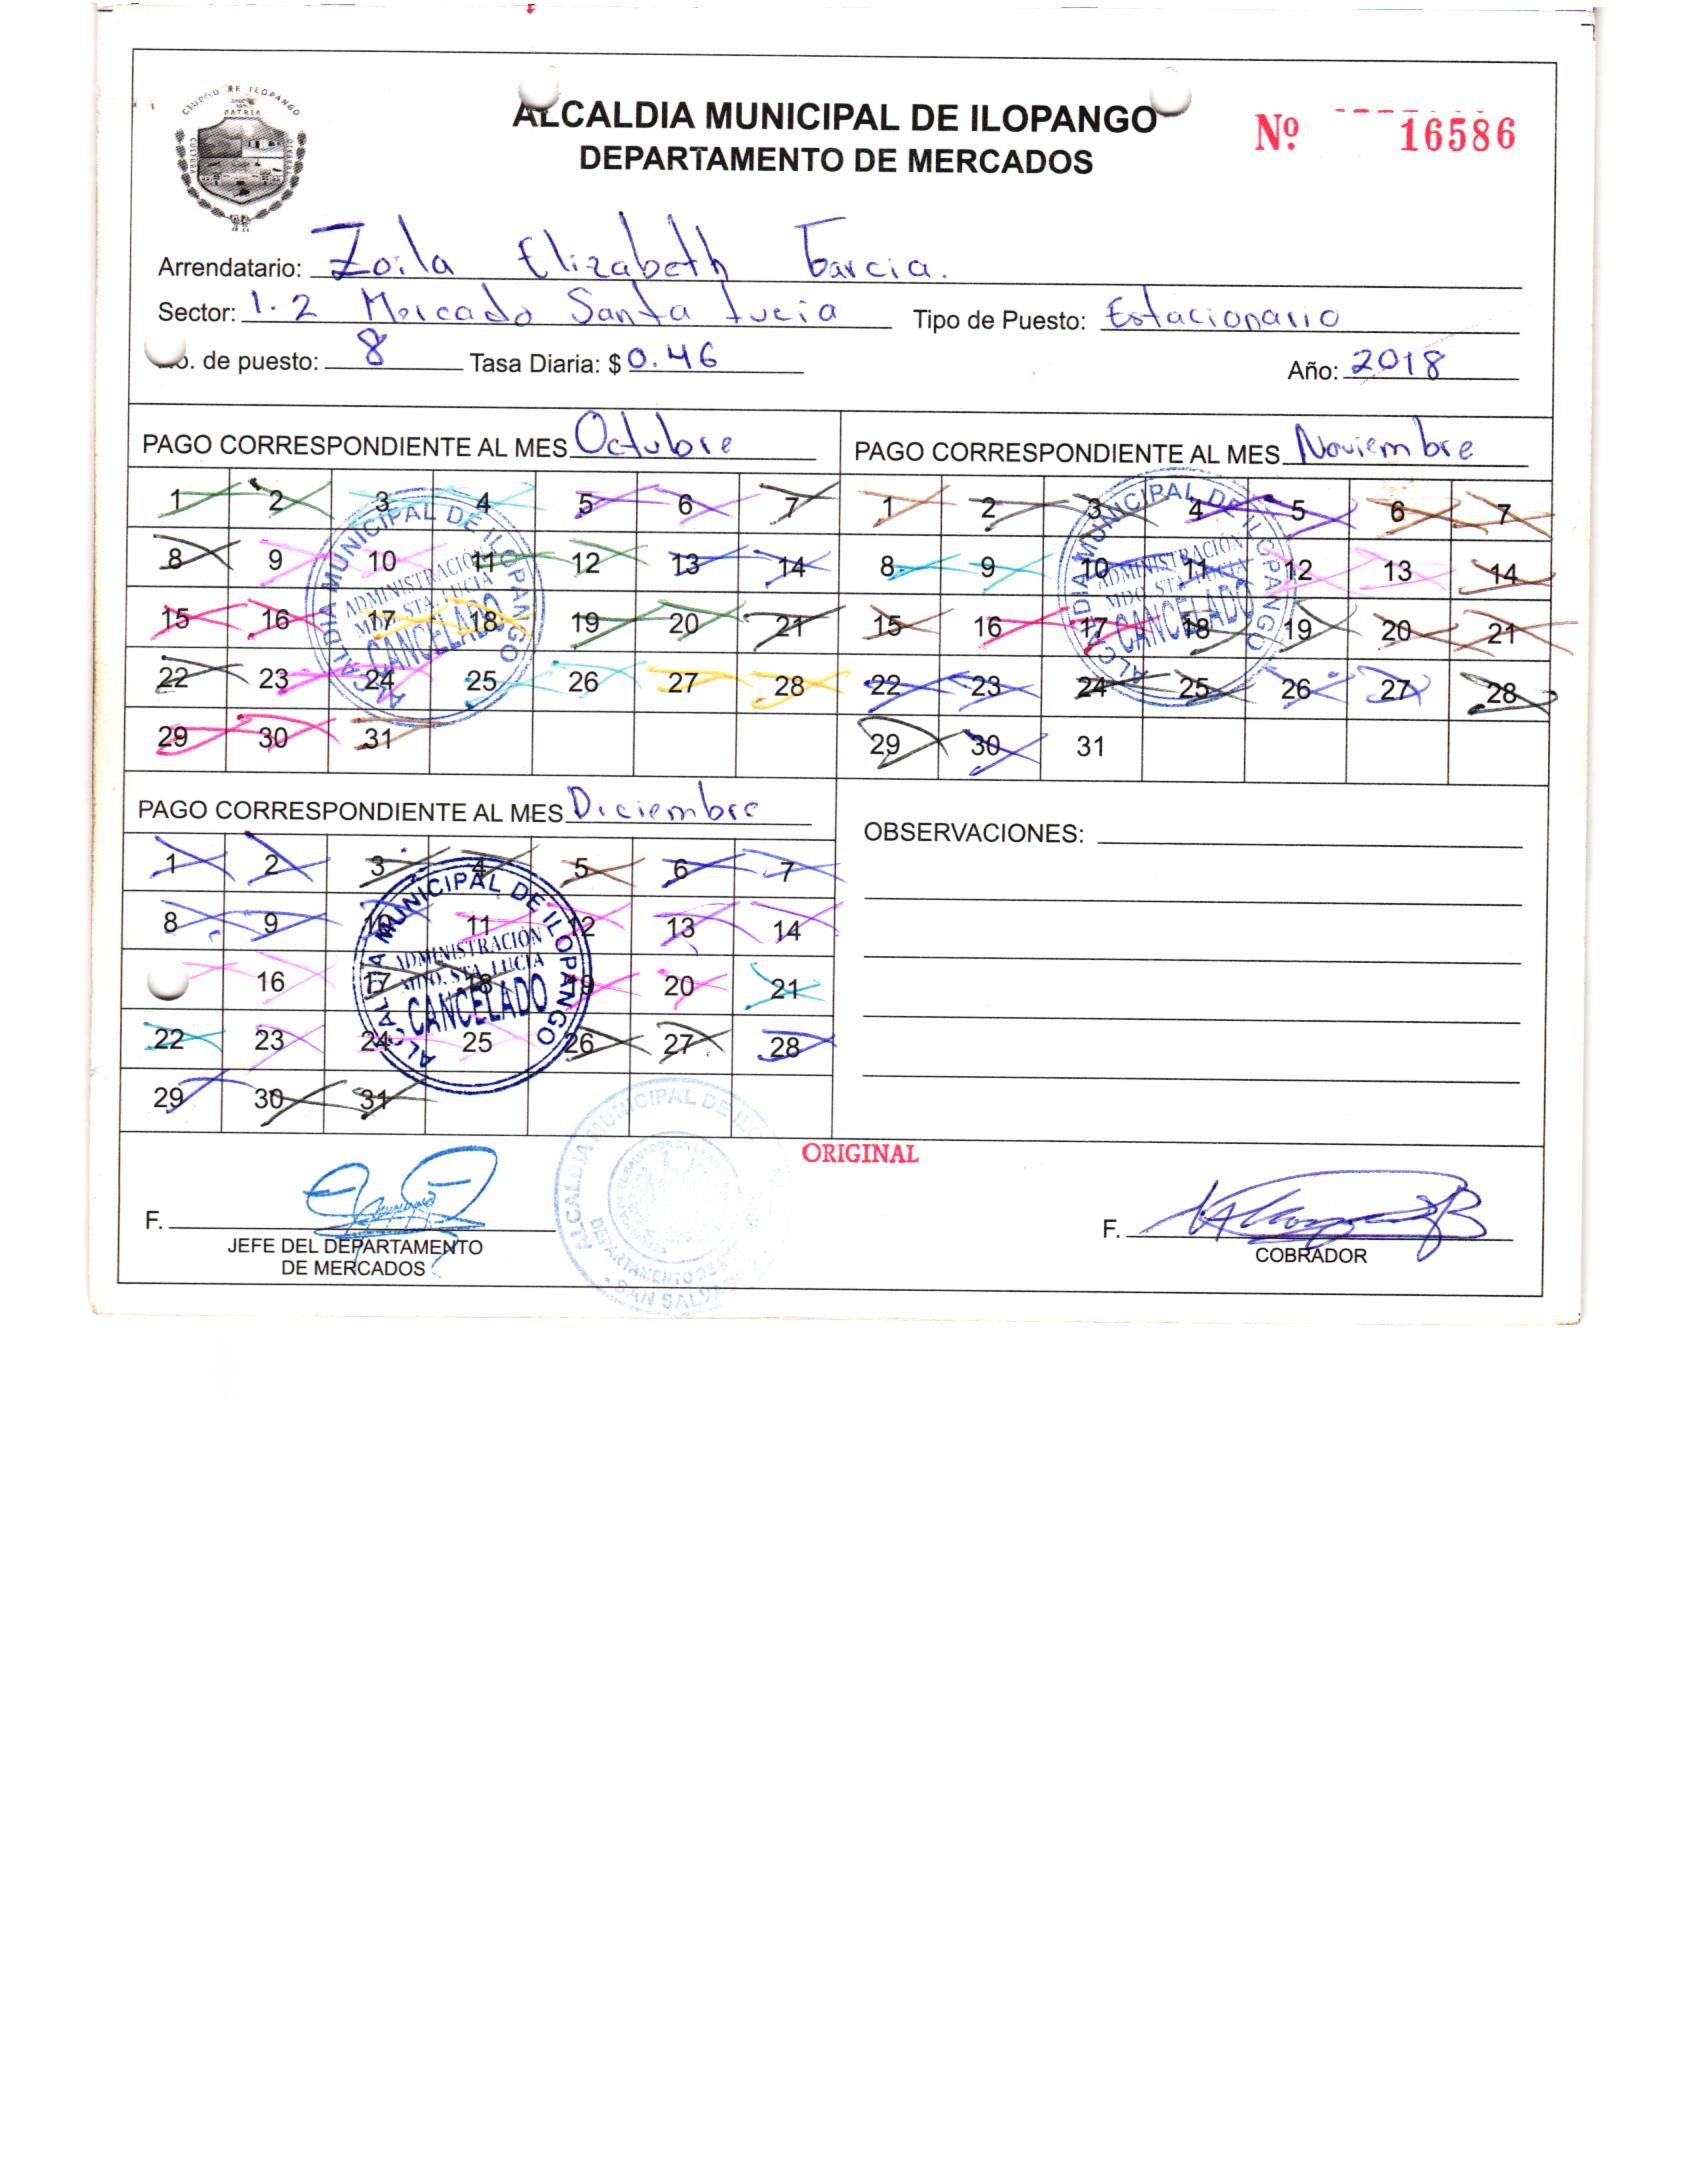 CIUDAD DE ILOPANGO
PATRIA
ALCALDIA MUNICIPAL DE ILOPANGO
DEPARTAMENTO DE MERCADOS
Nº 16586
Arrendatario: Zoila Elizabeth Garcia.
Sector: 1.2 Mercado Santa Lucia Tipo de Puesto: Estacionario
de puesto: 8 Tasa Diaria: $ 0.46 Año: 2018
PAGO CORRESPONDIENTE AL MES Octubre
1 2 3 4 5 6 7
8 9 10 11 12 13 14
15 16 17 18 19 20 21
22 23 24 25 26 27 28
29 30 31
ALCALDIA MUNICIPAL DE ILOPANGO
ADMINISTRACIÓN
MDO. STA. LUCIA
CANCELADO
PAGO CORRESPONDIENTE AL MES Noviembre
1 2 3 4 5 6 7
8 9 10 11 12 13 14
15 16 17 18 19 20 21
22 23 24 25 26 27 28
29 30 31
ALCALDIA MUNICIPAL DE ILOPANGO
ADMINISTRACIÓN
MDO. STA. LUCIA
CANCELADO
PAGO CORRESPONDIENTE AL MES Diciembre
1 2 3 4 5 6 7
8 9 10 11 12 13 14
16 17 18 19 20 21
22 23 24 25 26 27 28
29 30 31
ALCALDIA MUNICIPAL DE ILOPANGO
ADMINISTRACIÓN
MDO. STA. LUCIA
CANCELADO
OBSERVACIONES:
ORIGINAL
F.
JEFE DEL DEPARTAMENTO
DE MERCADOS
ALCALDIA MUNICIPAL DE
DEPARTAMENTO DE
F.
COBRADOR